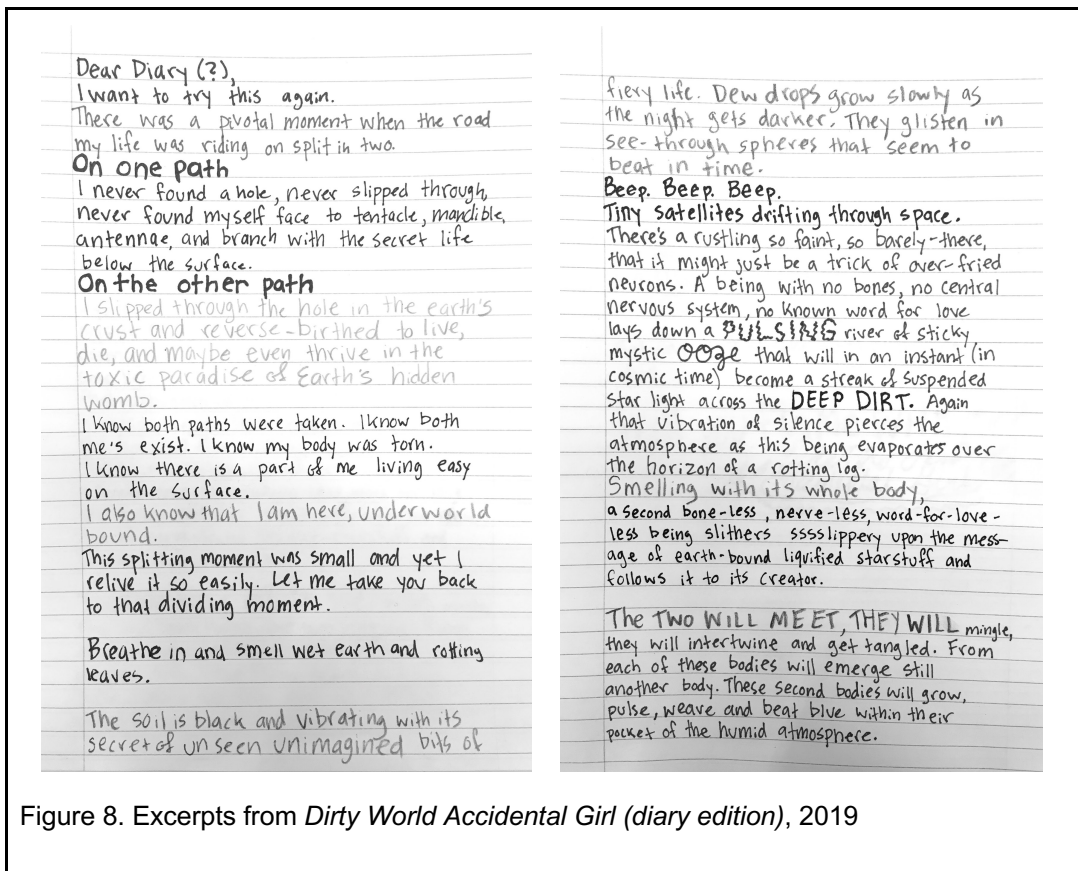 Dear Diary (?),
I want to try this again.
There was a pivotal moment when the road
my life was riding on split in two.
On one path
I never found a hole, never slipped through,
never found myself face to tentacle, mandible,
antennae, and branch with the secret life
below the surface.
On the other path
I slipped through the hole in the earth's
crust and reverse-birthed to live,
die, and maybe even thrive in the
toxic paradise of Earth's hidden
womb.
I know both paths were taken. I know both
me's exist. I know my body was torn.
I know there is a part of me living easy
on the surface.
I also know that I am here, underworld
bound.
This splitting moment was small and yet I
relive it so easily. Let me take you back
to that dividing moment.
Breathe in and smell wet earth and rotting
leaves.
The soil is black and vibrating with its
secret of unseen unimagined bits of
fiery life. Dew drops grow slowly as
the night gets darker. They glisten in
see-through spheres that seem to
beat in time.
Beep. Beep. Beep.
Tiny satellites drifting through space.
There's a rustling so faint, so barely-there,
that it might just be a trick of over-fried
neurons. A being with no bones, no central
nervous system, no known word for love
lays down a PULSING river of sticky
mystic OOze that will in an instant (in
cosmic time) become a streak of suspended
star light across the DEEP DIRT. Again
that vibration of silence pierces the
atmosphere as this being evaporates over
the horizon of a rotting log.
Smelling with its whole body,
a second bone-less, nerve-less, word-for-love-
less being slithers sssslippery upon the mess-
age of earth-bound liquified starstuff and
follows it to its creator.
The TWO WILL MEET, THEY WILL mingle,
they will intertwine and get tangled. From
each of these bodies will emerge still
another body. These second bodies will grow,
pulse, weave and beat blue within their
pocket of the humid atmosphere.
Figure 8. Excerpts from Dirty World Accidental Girl (diary edition), 2019